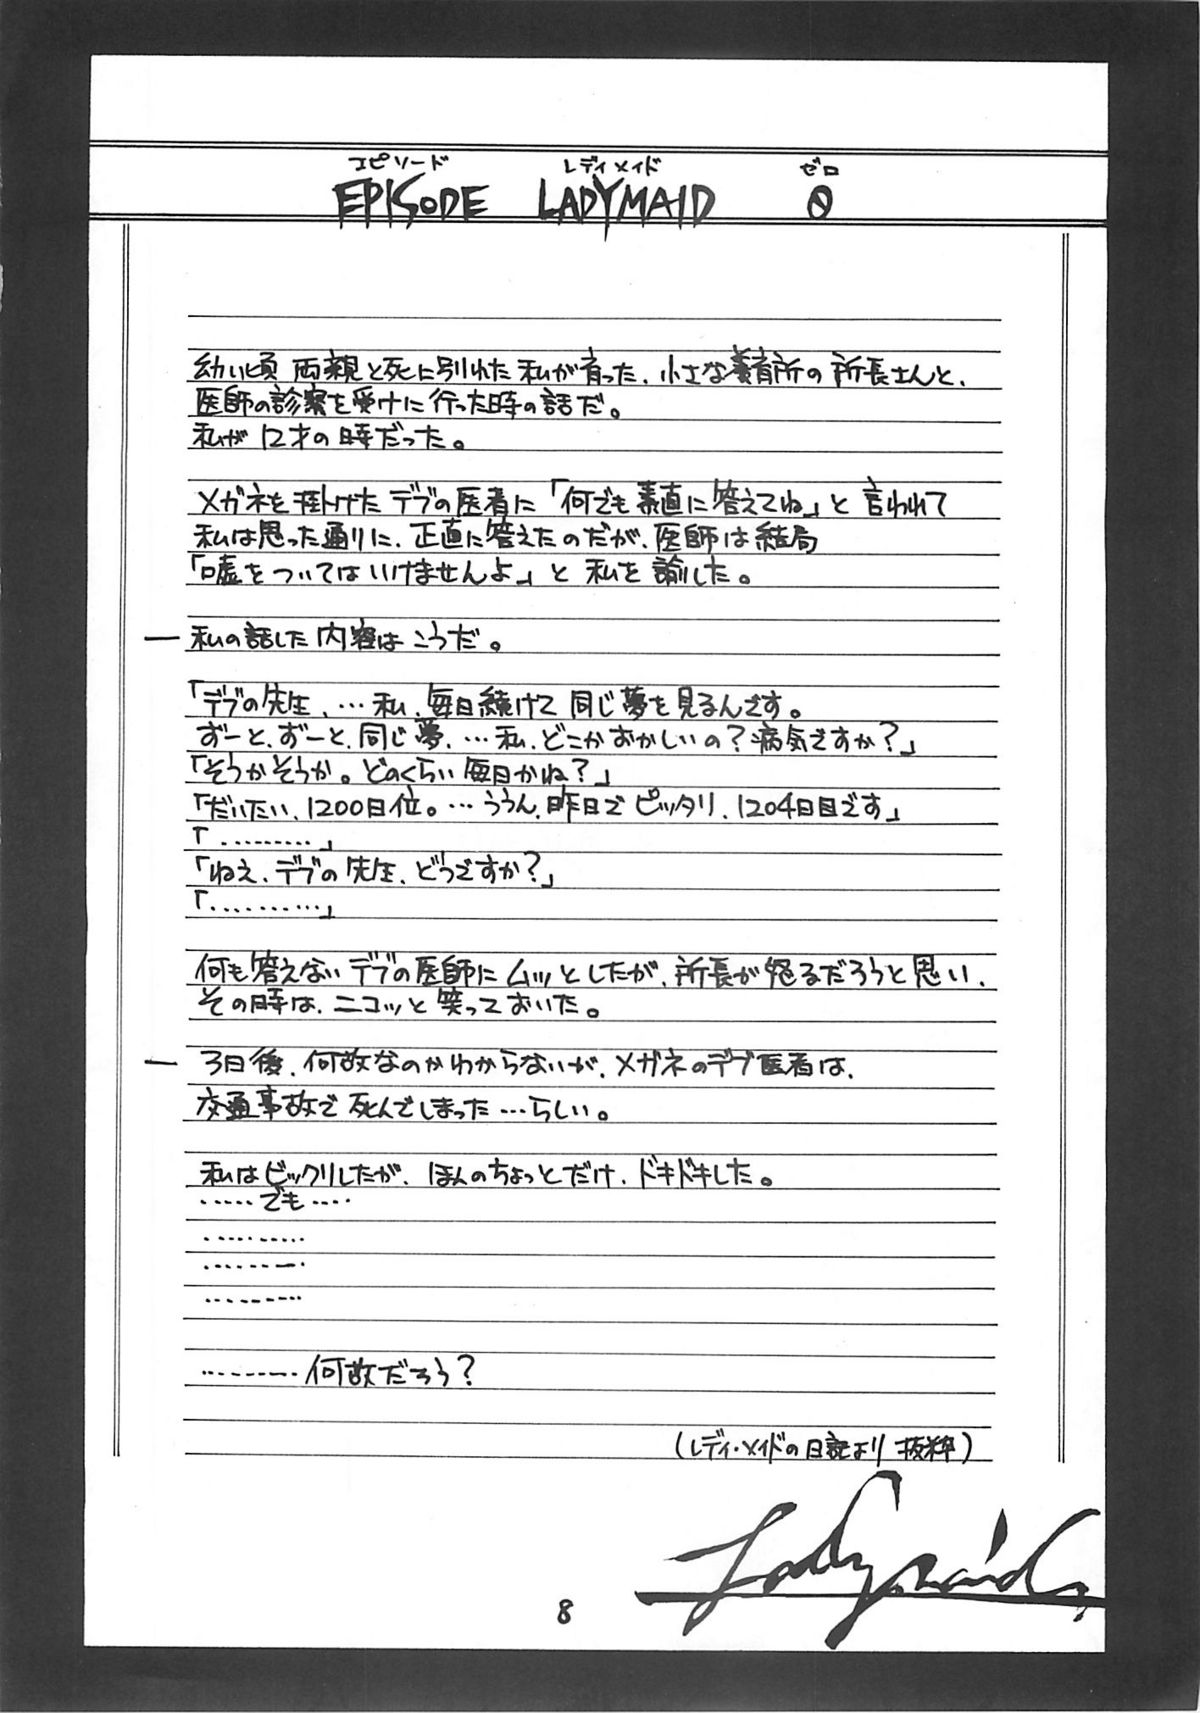 エピソード レディメイド ゼロ
EPISODE LADYMAID 0
幼い頃 両親と死に別れた 私が育った、小さな養育所の 所長さんと、
医師の診察を受けに行った時の話だ。
私が 12才の時だった。
メガネを掛けた デブの医者に「何でも素直に答えてね」と 言われて
私は思った通りに、正直に答えたのだが、医師は結局
「嘘をついてはいけませんよ」と 私を諭した。
― 私の話した 内容は こうだ。
「デブの先生、…私、毎日続けて 同じ夢を見るんです。
ずーと、ずーと、同じ夢、…私、どこかおかしいの?病気ですか?」
「そうかそうか。どのくらい 毎日かね?」
「だいたい、1200日位。…ううん、昨日で ピッタリ、1204日目です」
「………」
「ねえ、デブの先生、どうですか?」
「…………」
何も答えない デブの医師に ムッとしたが、所長が怒るだろうと思い、
その時は、ニコッと 笑っておいた。
― 3日後、何故なのかわからないが、メガネのデブ医者は、
交通事故で 死んでしまった…らしい。
私はビックリしたが、ほんのちょっとだけ、ドキドキした。
……でも……
………
………
………
………何故だろう?
(レディ・メイドの日記より 抜粋)
Ladymaid
8